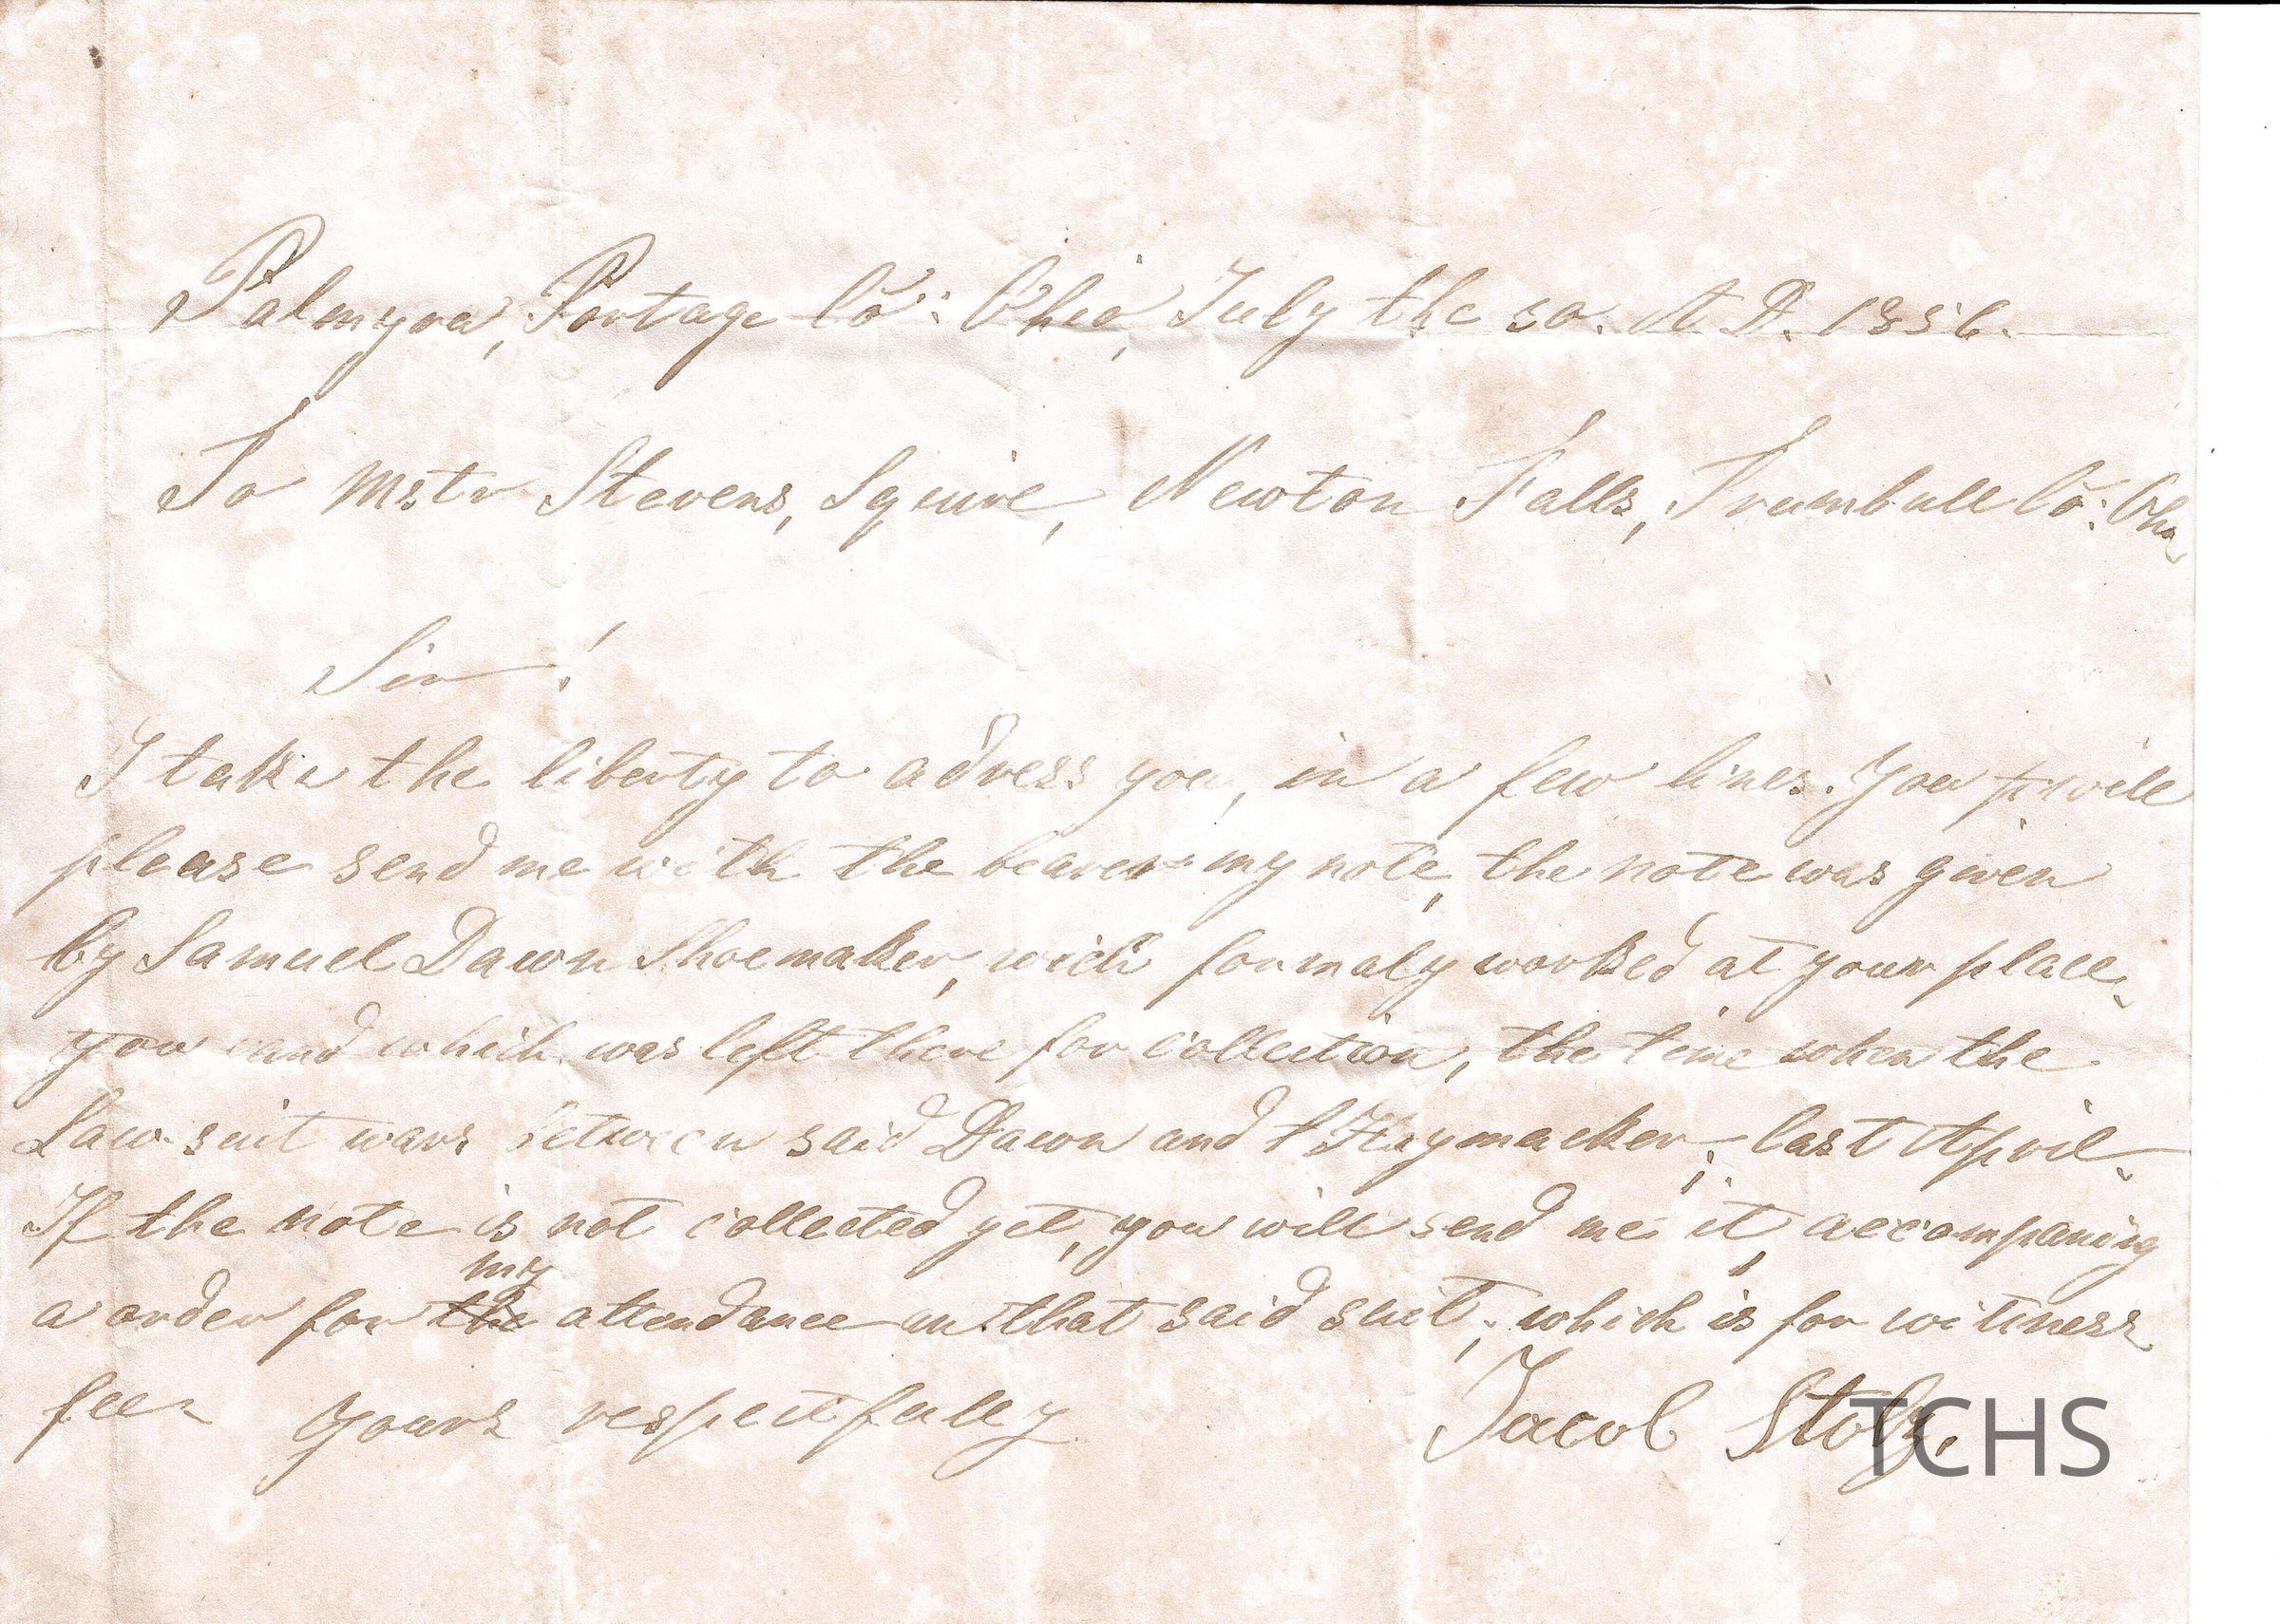 Palmyra, Portage Co: Ohio, July the 30. A. D. 1856.
To Mstr Stevens, Squire, Newton Falls, Trumbull Co: Oho
Sir!
I take the liberty to adress you, in a few lines. You will
please send me with the bearer my note, the note was given
by Samuel Dawn Shoemaker, wich formaly worked at your place,
you and which was left there for collection, the time when the
Law suit wars between said Dawn and Haymacker, last April.
If the note is not collected yet, you will send me it, accompaning
my
a order for the attendance in that said suit, which is for witiness
fee. Yours respectfully Jacob Stolz.
TCHS